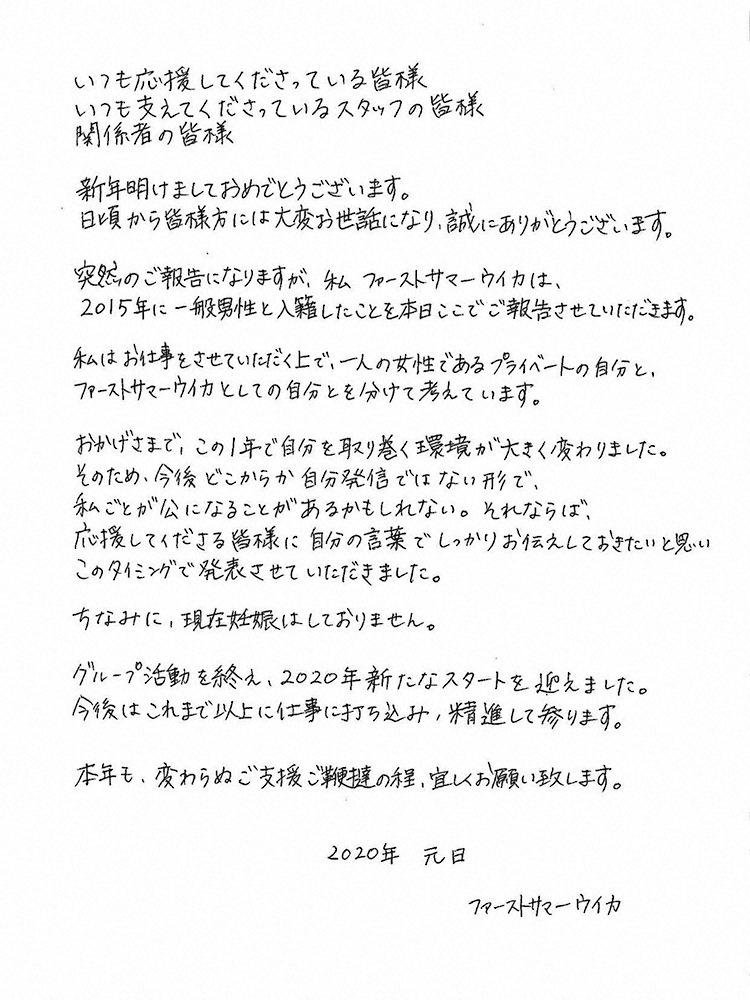 いつも応援してくださっている皆様
いつも支えてくださっているスタッフの皆様
関係者の皆様
新年明けましておめでとうございます。
日頃から皆様方には大変お世話になり、誠にありがとうございます。
突然のご報告になりますが、私 ファーストサマーウイカは、
2015年に一般男性と入籍したことを本日ここでご報告させていただきます。
私はお仕事をさせていただく上で、一人の女性であるプライベートの自分と、
ファーストサマーウイカとしての自分とを分けて考えています。
おかげさまで、この1年で自分を取り巻く環境が大きく変わりました。
そのため、今後どこからか自分発信ではない形で、
私ごとが公になることがあるかもしれない。それならば、
応援してくださる皆様に自分の言葉でしっかりお伝えしておきたいと思い
このタイミングで発表させていただきました。
ちなみに、現在妊娠はしておりません。
グループ活動を終え、2020年新たなスタートを迎えました。
今後はこれまで以上に仕事に打ち込み、精進して参ります。
本年も、変わらぬご支援ご鞭撻の程、宜しくお願い致します。
2020年 元日
ファーストサマーウイカ